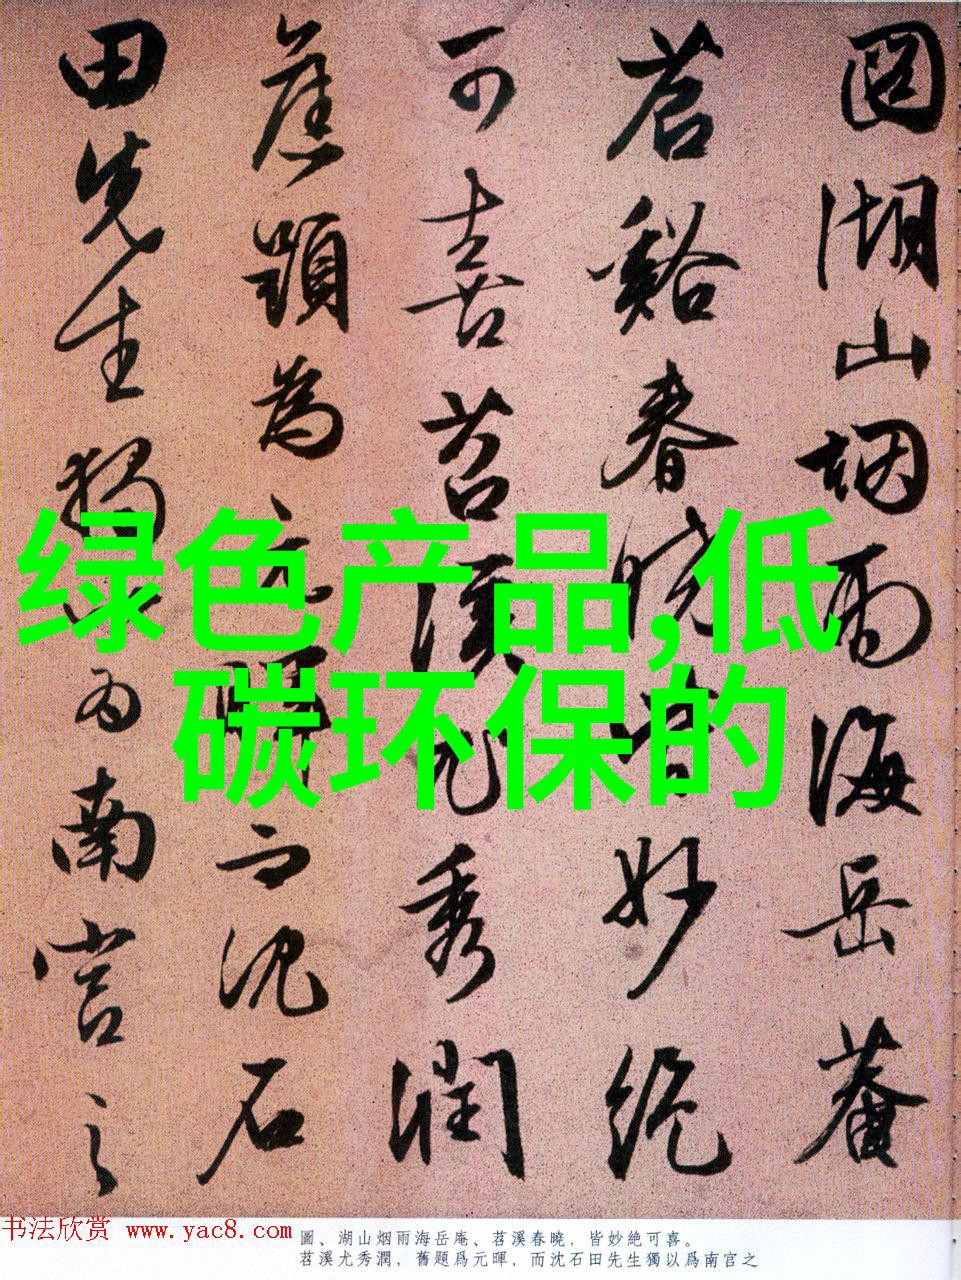 圖湖山烟雨海岳菴
苕谿春曉皆妙絕
可喜苕溪尤秀潤
舊題為元暉而沈石
田先生獨以為南宮之
绿色产品,低
碳环保的
圖、湖山烟雨海岳庵、苕溪春曉,皆妙絶可喜。
苕溪尤秀潤,舊題爲元暉,而沈石田先生獨以爲南宫之
书法欣赏 www.yac8.com